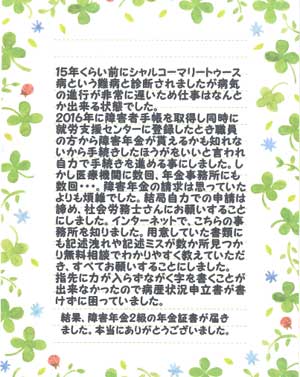 15年くらい前にシャルコーマリートゥース
病という難病と診断されましたが病気
の進行が非常に遅いため仕事はなんと
か出来る状態でした。
2016年に障害者手帳を取得し同時に
就労支援センターに登録したとき職員
の方から障害年金が貰えるかも知れな
いから手続きしたほうがいいと言われ
自力で手続きを進める事にしました。し
かし医療機関に数回、年金事務所にも
数回・・・。障害年金の請求は思っていた
よりも煩雑でした。結局自力での申請は
諦め、社会労務士さんにお願いすること
にしました。インターネットで、こちらの事
務所を知りました。用意していた書類に
も記述洩れや記述ミスが数か所見つか
り無料相談でわかりやすく教えていただ
き、すべてお願いすることにしました。
指先に力が入らずながく字を書くことが
出来なかったので病歴状況申立書が書
けずに困っていました。
結果、障害年金2級の年金証書が届き
ました。本当にありがとうございました。